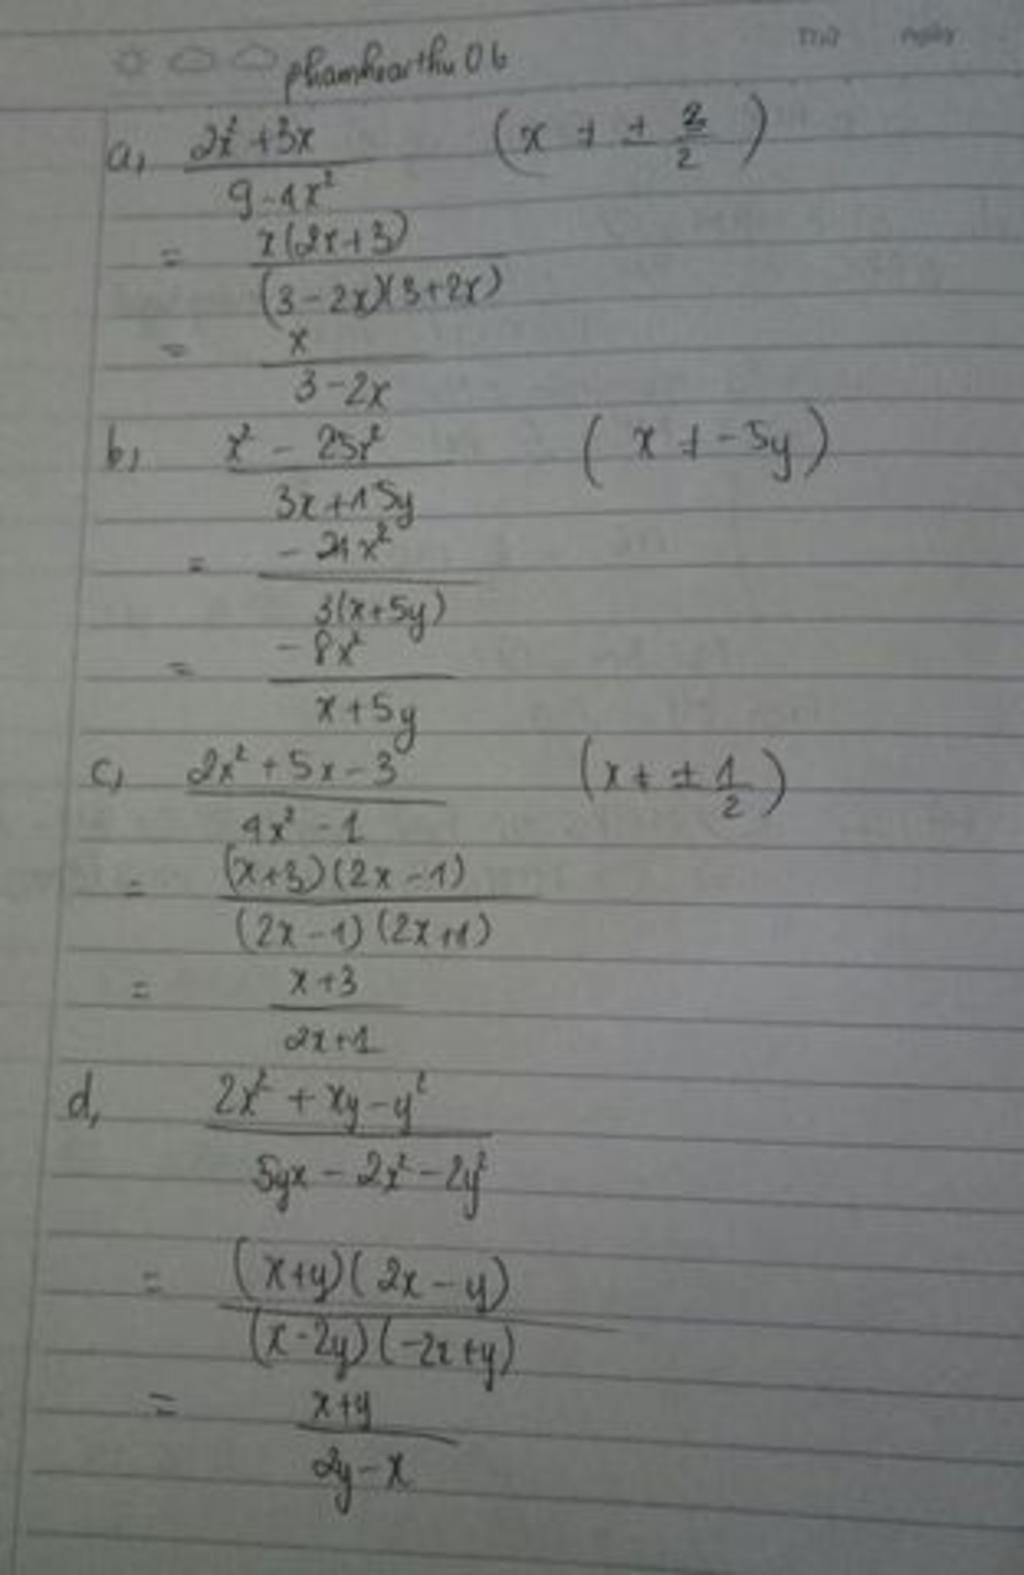 phamhearthu06
a, \frac{2x² + 3x}{9 - 4x²} (x ≠ ± \frac{3}{2})
= \frac{x(2x+3)}{(3-2x)(3+2x)}
= \frac{x}{3-2x}
b, \frac{x² - 25x²}{3x+15y} (x ≠ -5y)
= \frac{-24x²}{3(x+5y)}
= \frac{-8x²}{x+5y}
c, \frac{2x² + 5x - 3}{4x² - 1} (x ≠ ± \frac{1}{2})
= \frac{(x+3)(2x-1)}{(2x-1)(2x+1)}
= \frac{x+3}{2x+1}
d, \frac{2x² + xy - y²}{5yx - 2x² - 2y²}
= \frac{(x+y)(2x-y)}{(x-2y)(-2x+y)}
= \frac{x+y}{2y-x}